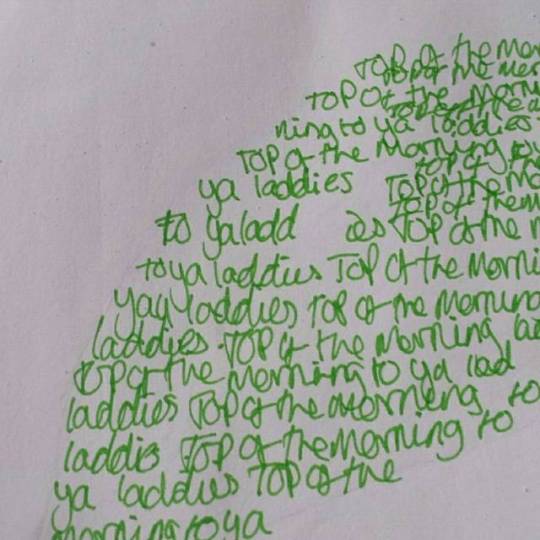 TOP of the Mor
TOP of the mer
TOP Of the Mornu
ning to ya laddies
TOP of the Morning to y
ya laddies TOP of the Mo
TOP of them
to ya ladd ies TOP of the m
to ya laddies TOP of the Morni
yay laddies TOP of the Morning
laddies TOP of the Morning la
TOP of the Morning to ya lad
laddies TOP of the Morning to
laddis TOP of the Morning to
ya laddies TOP of the
morning to ya